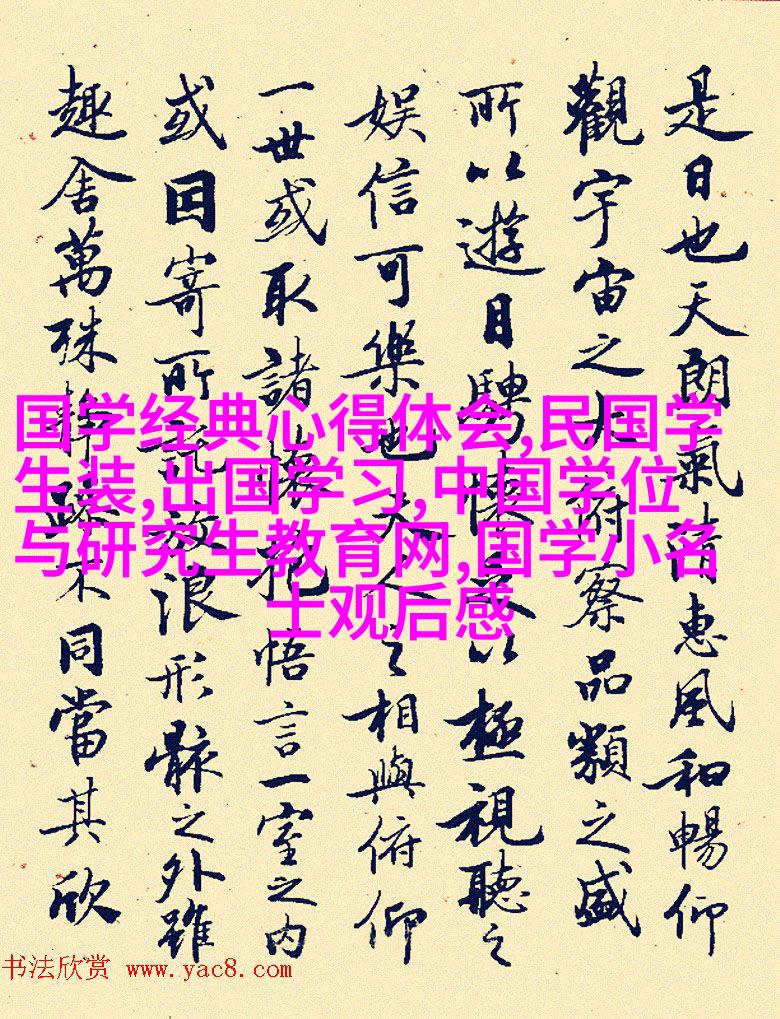 是日也天朗氣清惠風和暢仰
觀宇宙之大俯察品類之盛
所以遊目騁懷足以極視聽之
娛信可樂也夫人之相與俯仰
一世或取諸懷抱悟言一室之内
或因寄所託放浪形骸之外雖
趣舍萬殊靜躁不同當其欣
国学经典心得体会,民国学
生装,出国学习,中国学位
与研究生教育网,国学小名
士观后感
书法欣赏 www.yac8.com